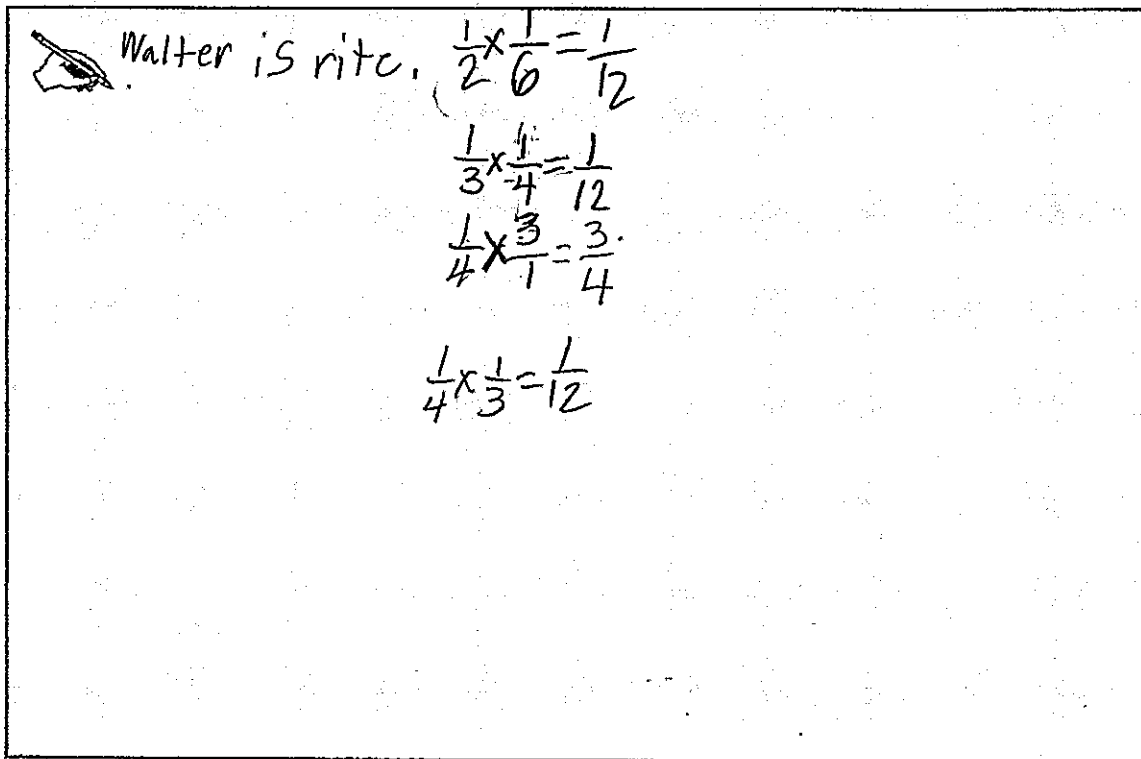 Walter is rite. 1/2 x 1/6 = 1/12
1/3 x 1/4 = 1/12
1/4 x 3/1 = 3/4
1/4 x 1/3 = 1/12